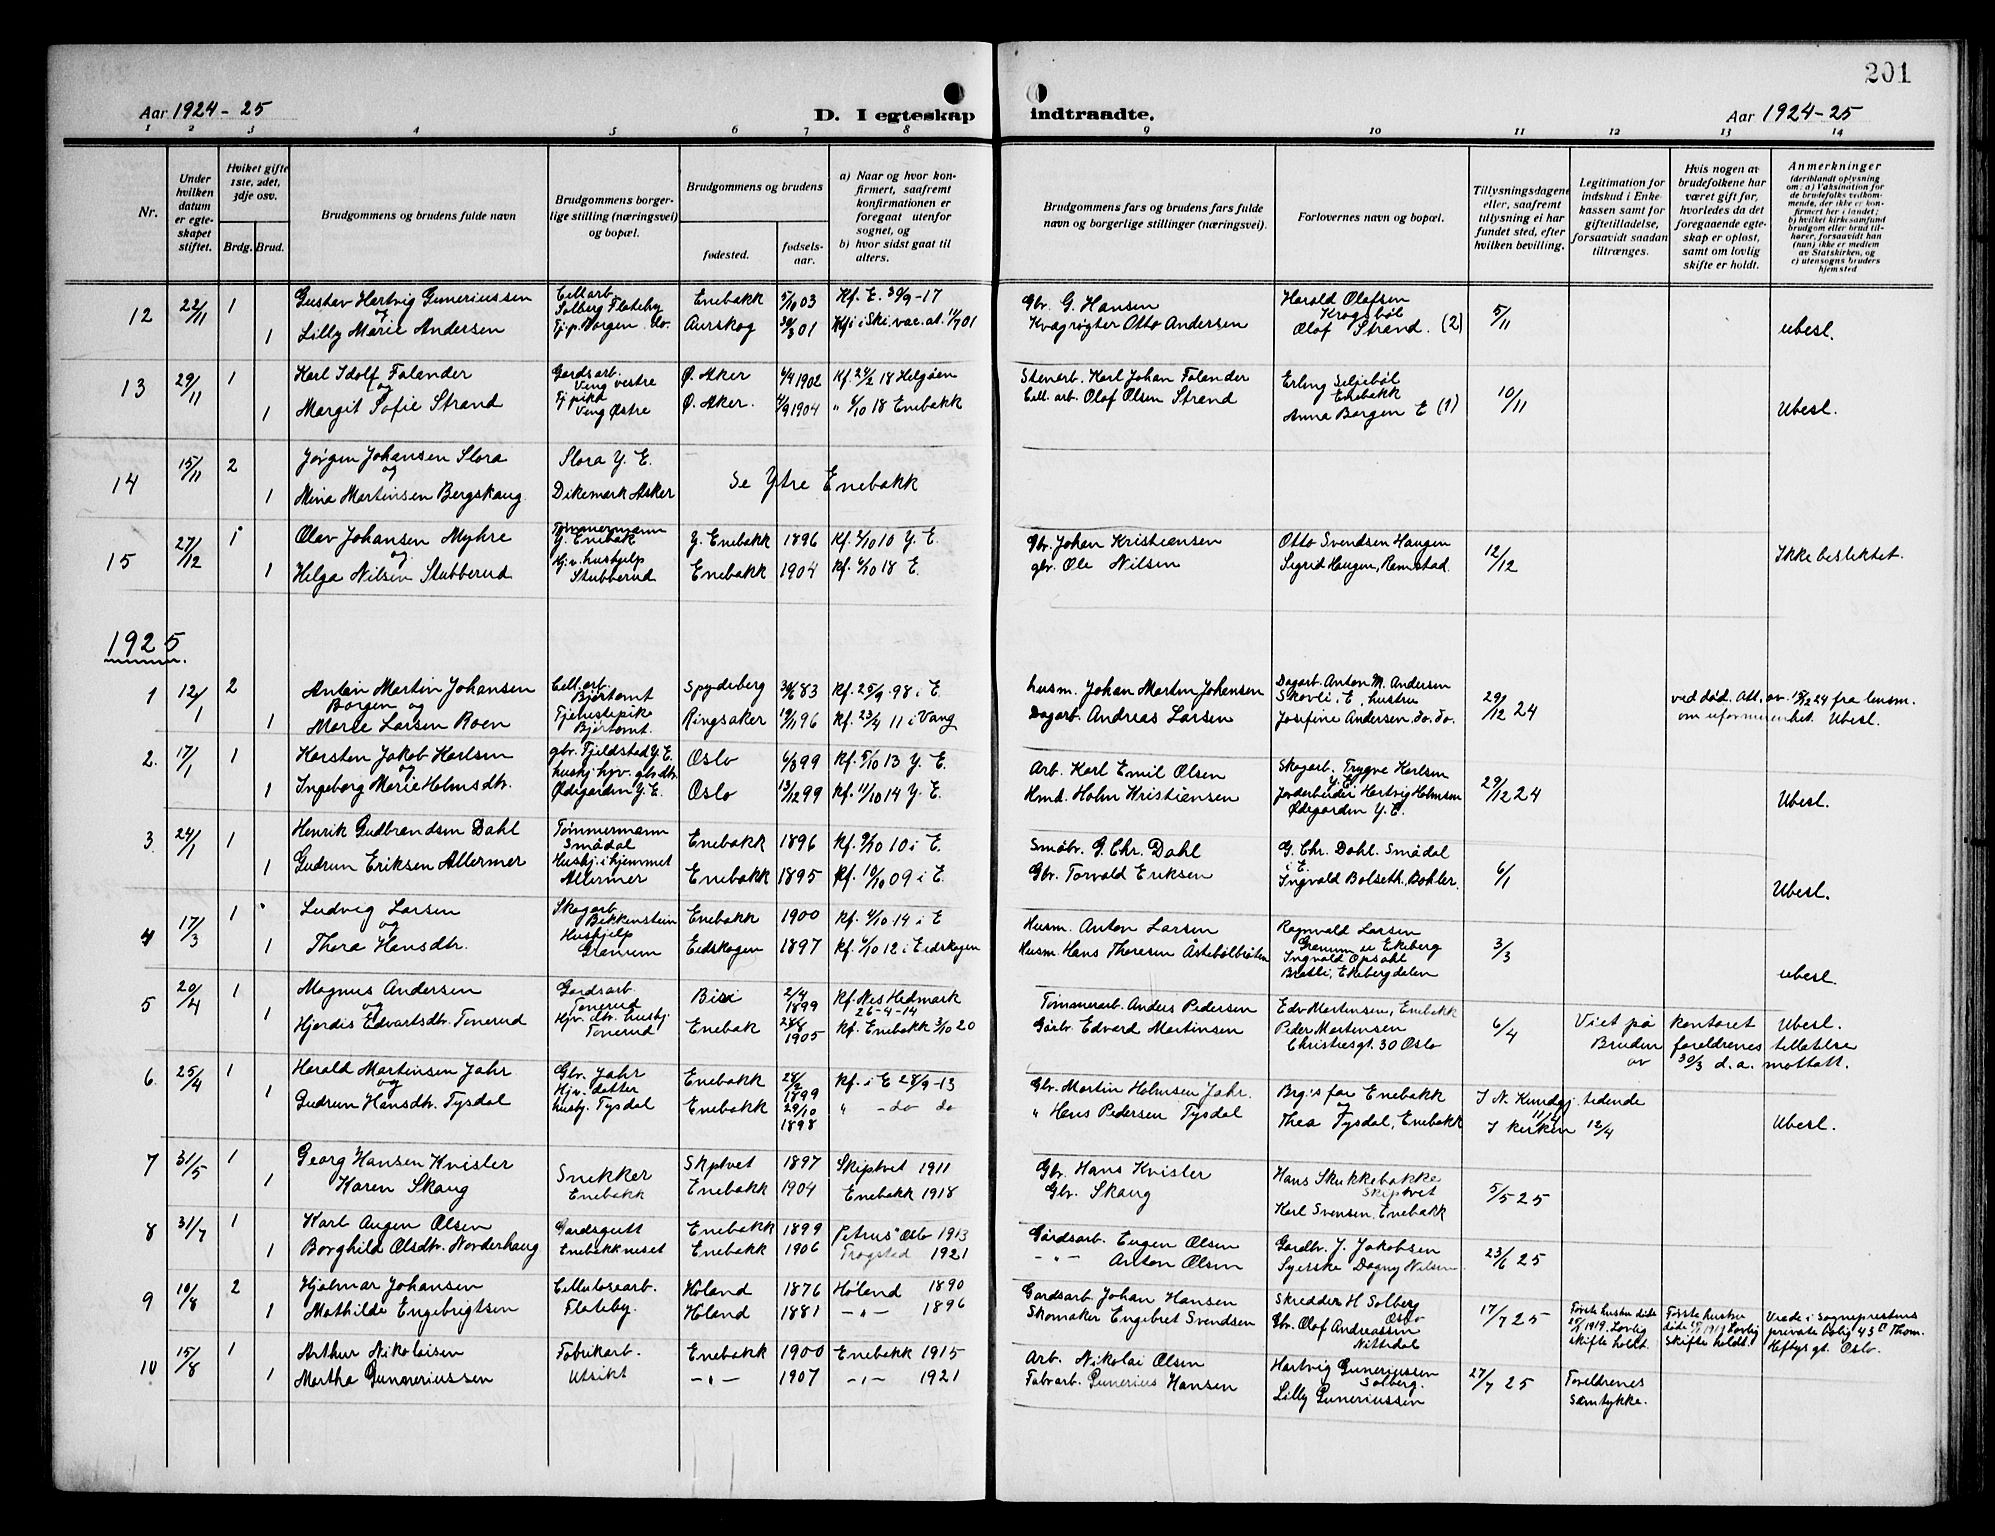 201
Aar 1924-25
D. I egteskap indtraadte.
Aar 1924-25
1 2 3 4 5 6 7 8 9 10 11 12 13 14
Nr.
Under hvilken datum er egteskapet stiftet.
Hvilket gifte 1ste, 2det, 3dje osv.
Brdg. Brud.
Brudgommens og brudens fulde navn
Brudgommens borgerlige stilling (næringsvei) og bopæl.
Brudgommens og brudens
fødested.
fødselsaar.
a) Naar og hvor konfirmert, saafremt konfirmationen er foregaat utenfor sognet, og
b) hvor sidst gaat til alters.
Brudgommens fars og brudens fars fulde navn og borgerlige stillinger (næringsvei).
Forlovernes navn og bopæl.
Tillysningsdagene eller, saafremt tillysning ei har fundet sted, efter hvilken bevilling.
Legitimation for indskud i Enkekassen samt for giftetilladelse, forsaavidt saadan tiltrænges.
Hvis nogen av brudefolkene har været gift før, hvorledes da det foregaaende egteskap er opløst, samt om lovlig skifte er holdt.
Anmerkninger
(deriblandt oplysning om: a) Vaksination for de brudefolks vedkommende, der ikke er konfirmert her i landet; b) hvilket kirkesamfund brudgom eller brud tilhører, forsaavidt han (hun) ikke er medlem av Statskirken, og c) utensogns bruders hjemsted
12 22/11 1 Gustav Hartvig Guneriussen Cell.arb. Solberg Flateby Enebakk 5/10 03 Kf. E. 30/9-17 Gbr. G. Hansen Harald Olafsen Krogsbøl 5/11
og
1 Lilly Marie Andersen Aurskog 30/3 01 Kvægrøgter Otto Andersen Olaf Strand. (2) ubesl.
13 29/11 1 Karl Idolf Falander Gardsarb. Veng vestre Ø. Aker 4/4 1902 Kf. 24/2 18 Helgøen Stenarb. Karl Johan Falander Erling Seljebøl Enebakk 10/11
og
1 Margit Sofie Strand Tj.pike Veng Østre Ø. Aker. 4/9 1904 " 6/10 18 Enebakk Cell. arb. Olaf Olsen Strand Anna Borgen E (1) Ubesl.
14 15/11 2 Jørgen Johansen Slora Slora Y. E.
og Se Ytre Enebakk
1 Mina Martinsen Bergskaug Dikemark Asker
15 27/12 1 Olav Johansen Myhre Tømmermann Y. Enebak Y. Enebakk 1896 Kf. 2/10 10 Y. E. Gbr. Johan Kristiansen Otto Svendsen Haugen 12/12
og
1 Helga Nilsen Stubberud Hjv. hushjelp Stubberud Enebakk 1904 Kf. 6/10 18 E. gbr. Ole Nilsen Sigrid Haugen, Ramstad. Ikke beslektet.
1925
1 12/1 2 Anton Martin Johansen Cell.arb. Bjørtomt Spydeberg 30/6 83 Kf. 25/9-98 i E. husm. Johan Martin Johansen Dagarb. Anton M. Andersen 29/12 24 ved død. Att. av 15/12 24 fra lensm.
Borgen og Skovli, E., hustru
1 Marie Larsen Boen Tjenestepike Bjørtomt. Ringsaker 19/11 96 Kf. 23/4 11 i Vang Dagarb. Andreas Larsen Josefine Andersen. do. do. om uformuenhet. Ubesl.
2. 17/1 1 Karsten Jakob Karlsen gbr. Fjeldstad Y. E. Oslo 6/8 99 Kf. 5/10 13 Y. E. Arb. Karl Emil Olsen Skogarb. Trygve Karlsen Y. E. 29/12 24
og
1 Ingeborg Marie Holmsdtr. hushj. hjv. gbr.dtr. Ødegarden Y. E. Oslo 13/12 99 Kf. 11/10 14 Y. E. Hmd. Holm Kristiansen Jordarbeider Hartvig Holmsen Ødegarden Y. E. Ubesl.
3. 24/1 1 Henrik Gudbrandsen Dahl Tømmermann Smådal Enebakk 1896 Kf. 9/10 10 i E. Småbr. G. Chr. Dahl G. Chr. Dahl. Smådal i E. 6/1
1 Gudrun Eriksen Allermer Hushj. i hjemmet Allermer Enebakk 1895 Kf. 10/10 09 i E. Gbr. Torvald Eriksen Ingvald Bolseth, Bøhler. Ubesl.
4 17/3 1 Ludvig Larsen Skogarb. Bekkenstein Enebakk 1900 Kf. 4/10 14 i E Husm. Anton Larsen Ragnvald Larsen 3/3
og Granum u Ekeberg
1 Thora Hansdtr. Hushjelp Granum Eidskogen 1897 Kf. 6/10 12 i Eidskogen Husm. Hans Thoresen Åstebølbråten Ingvald Opsahl Bratli, Ekebergdalen ubesl.
5 20/4 1 Magnus Andersen Gardsarb. Tonerud Biri 2/4 1899 Kf. Nes Hedmark 26-4-14 Tømmerarb. Anders Pedersen Edv. Martinsen, Enebakk 6/4 Viet på kontoret Ubesl.
og
1 Hjørdis Edvartsdtr. Tonerud Hjv. dtr. hushj. Tonerud Enebak 28/8 1905 Kf. Enebakk 3/10 20 Gårbr. Edvard Martinsen Peder Martensen Christiesgt. 30 Oslo Bruden foreldrenes tillatelse av 30/3 d.a. mottatt.
6. 25/4 1 Harald Martinsen Jahr Gbr. Jahr Enebakk 28/2 1899 Kf. i E 28/9-13 Gbr. Martin Holmsen Jahr. Brg's far Enebakk I N. Kundgj. tidende 11/4
og
1 Gudrun Hansdtr. Tysdal Hjv. datter hushj. Tysdal Enebakk 29/10 1898 " - do do " Hans Pedersen Tysdal Thea Tysdal, Enebakk I kirken 12/4 Ubesl.
7 31/5 1 Georg Hansen Kvisler Snekker Enebakk Skptvet 1897 Skiptvet 1911 Gbr. Hans Kvisler Hans Skukkebakke Skiptvet 5/5 25
1 Karen Skaug Enebakk 1904 Enebakk 1918 Gbr. Skaug Karl Svensen, Enebakk
8 31/7 1 Karl Augen Olsen Gardsgutt Enebakk 1899 Petrus Oslo 1913 Gårdsarb. Eugen Olsen Gardbr. J. Jakobsen 23/6 25
1 Borghild Olsdtr. Norderhaug Enebakkneset Enebakk 1906 Trøgsted 1921 - " - Anton Olsen Syerske Dagny Nilsen
9 10/8 2 Hjalmar Johansen Cellulosearb. Flateby. Høland 1876 Høland 1890 Gardsarb. Johan Hansen Skredder H Solberg Oslo 17/7 25 Første hustru døde 25/1 1919. Lovlig skifte holdt. Første hustru døde 1919 Lovlig skifte holdt. Viede i sogneprestens private bolig 43 Thom. Heftysgt. Oslo.
1 Mathilde Engebrigtsen Høland 1881 - " - 1896 Skomaker Engebret Svendsen Gbr. Olaf Andreassen Nittedal
10 15/8 1 Arthur Nikolaisen Fabrikarb. Utsikt Enebakk 1900 Enebakk 1915 Arb. Nikolai Olsen Hartvig Guneriussen Solberg. 27/7 25 Foreldrenes samtykke.
1 Martha Gunneriussen - " - 1907 - " - 1921 Fabrarb. Gunerius Hansen Lilly Guneriussen